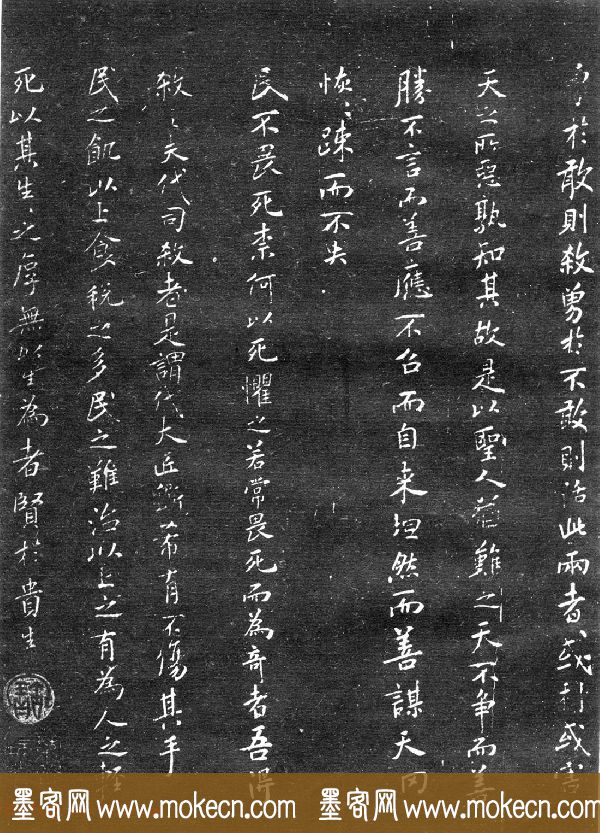 勇於敢則殺勇於不敢則活此兩者或利或害
天之所惡孰知其故是以聖人猶難之天不爭而善
勝不言而善應不召而自來坦然而善謀天罔
恢〻疎而不失
民不畏死柰何以死懼之若常畏死而為奇者吾得
殺〻夫代司殺者是謂代大匠斲希有不傷其手
民之飢以上食稅之多民之難治以上之有為人之輕
死以其生〻之厚無以生為者賢於貴生
墨客网 www.mokecn.com 墨客网 www.mokecn.com